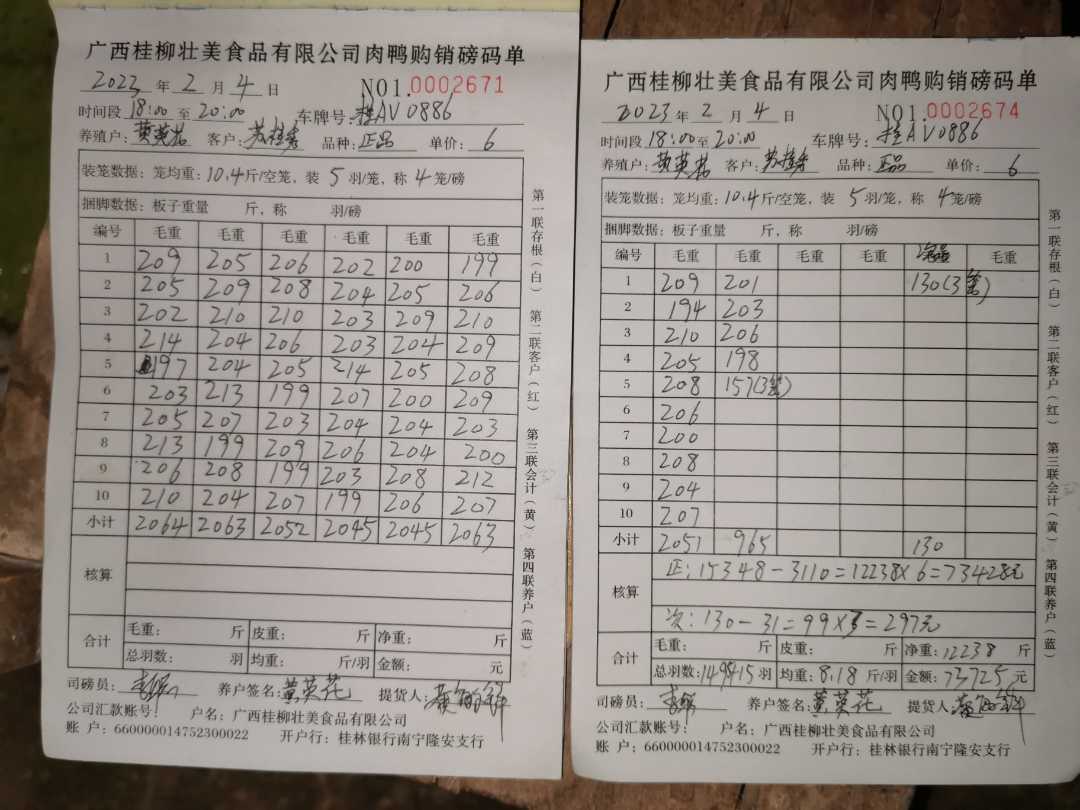 广西桂柳壮美食品有限公司肉鸭购销磅码单
2023 年 2 月 4 日 NO1. 0002671
时间段 18:00 至 20:00 车牌号: 桂AV0886
养殖户: 黄英花 客户: 苏桂秀 品种: 正品 单价: 6
装笼数据: 笼均重: 10.4 斤/空笼, 装 5 羽/笼, 称 4 笼/磅
捆脚数据: 板子重量 斤, 称 羽/磅
编号 毛重 毛重 毛重 毛重 毛重 毛重
1 209 205 206 202 200 199
2 205 209 208 204 205 206
3 202 210 210 203 209 210
4 214 204 206 203 204 209
5 197 204 205 214 205 208
6 203 213 199 207 200 209
7 205 207 203 204 204 203
8 213 199 209 206 204 200
9 206 208 199 203 208 212
10 210 204 207 199 206 207
小计 2064 2063 2052 2045 2045 2063
核算
合计 毛重: 斤 皮重: 斤 净重: 斤
总羽数: 羽 均重: 斤/羽 金额: 元
司磅员: 养户签名: 黄英花 提货人:
公司汇款账号: 户名: 广西桂柳壮美食品有限公司
账 户: 660000014752300022 开户行: 桂林银行南宁隆安支行
第一联存根(白) 第二联客户(红) 第三联会计(黄) 第四联养户(蓝)
广西桂柳壮美食品有限公司肉鸭购销磅码单
2023 年 2 月 4 日 NO1. 0002674
时间段 18:00 至 20:00 车牌号: 桂AV0886
养殖户: 黄英花 客户: 苏桂秀 品种: 正品 单价: 6
装笼数据: 笼均重: 10.4 斤/空笼, 装 5 羽/笼, 称 4 笼/磅
捆脚数据: 板子重量 斤, 称 羽/磅
编号 毛重 毛重 毛重 毛重 毛重
1 209 201 130(3笼)
2 194 203
3 210 206
4 205 198
5 208 157(3笼)
6 206
7 200
8 208
9 204
10 207
小计 2051 965 130
核算 正: 15348-3110=12238×6=73428元
次: 130-31=99×3=297元
合计 毛重: 斤 皮重: 斤 净重: 12238 斤
总羽数: 149415 羽 均重: 8.18 斤/羽 金额: 73725 元
司磅员: 养户签名: 黄英花 提货人:
公司汇款账号: 户名: 广西桂柳壮美食品有限公司
账 户: 660000014752300022 开户行: 桂林银行南宁隆安支行
第一联存根(白) 第二联客户(红) 第三联会计(黄) 第四联养户(蓝)